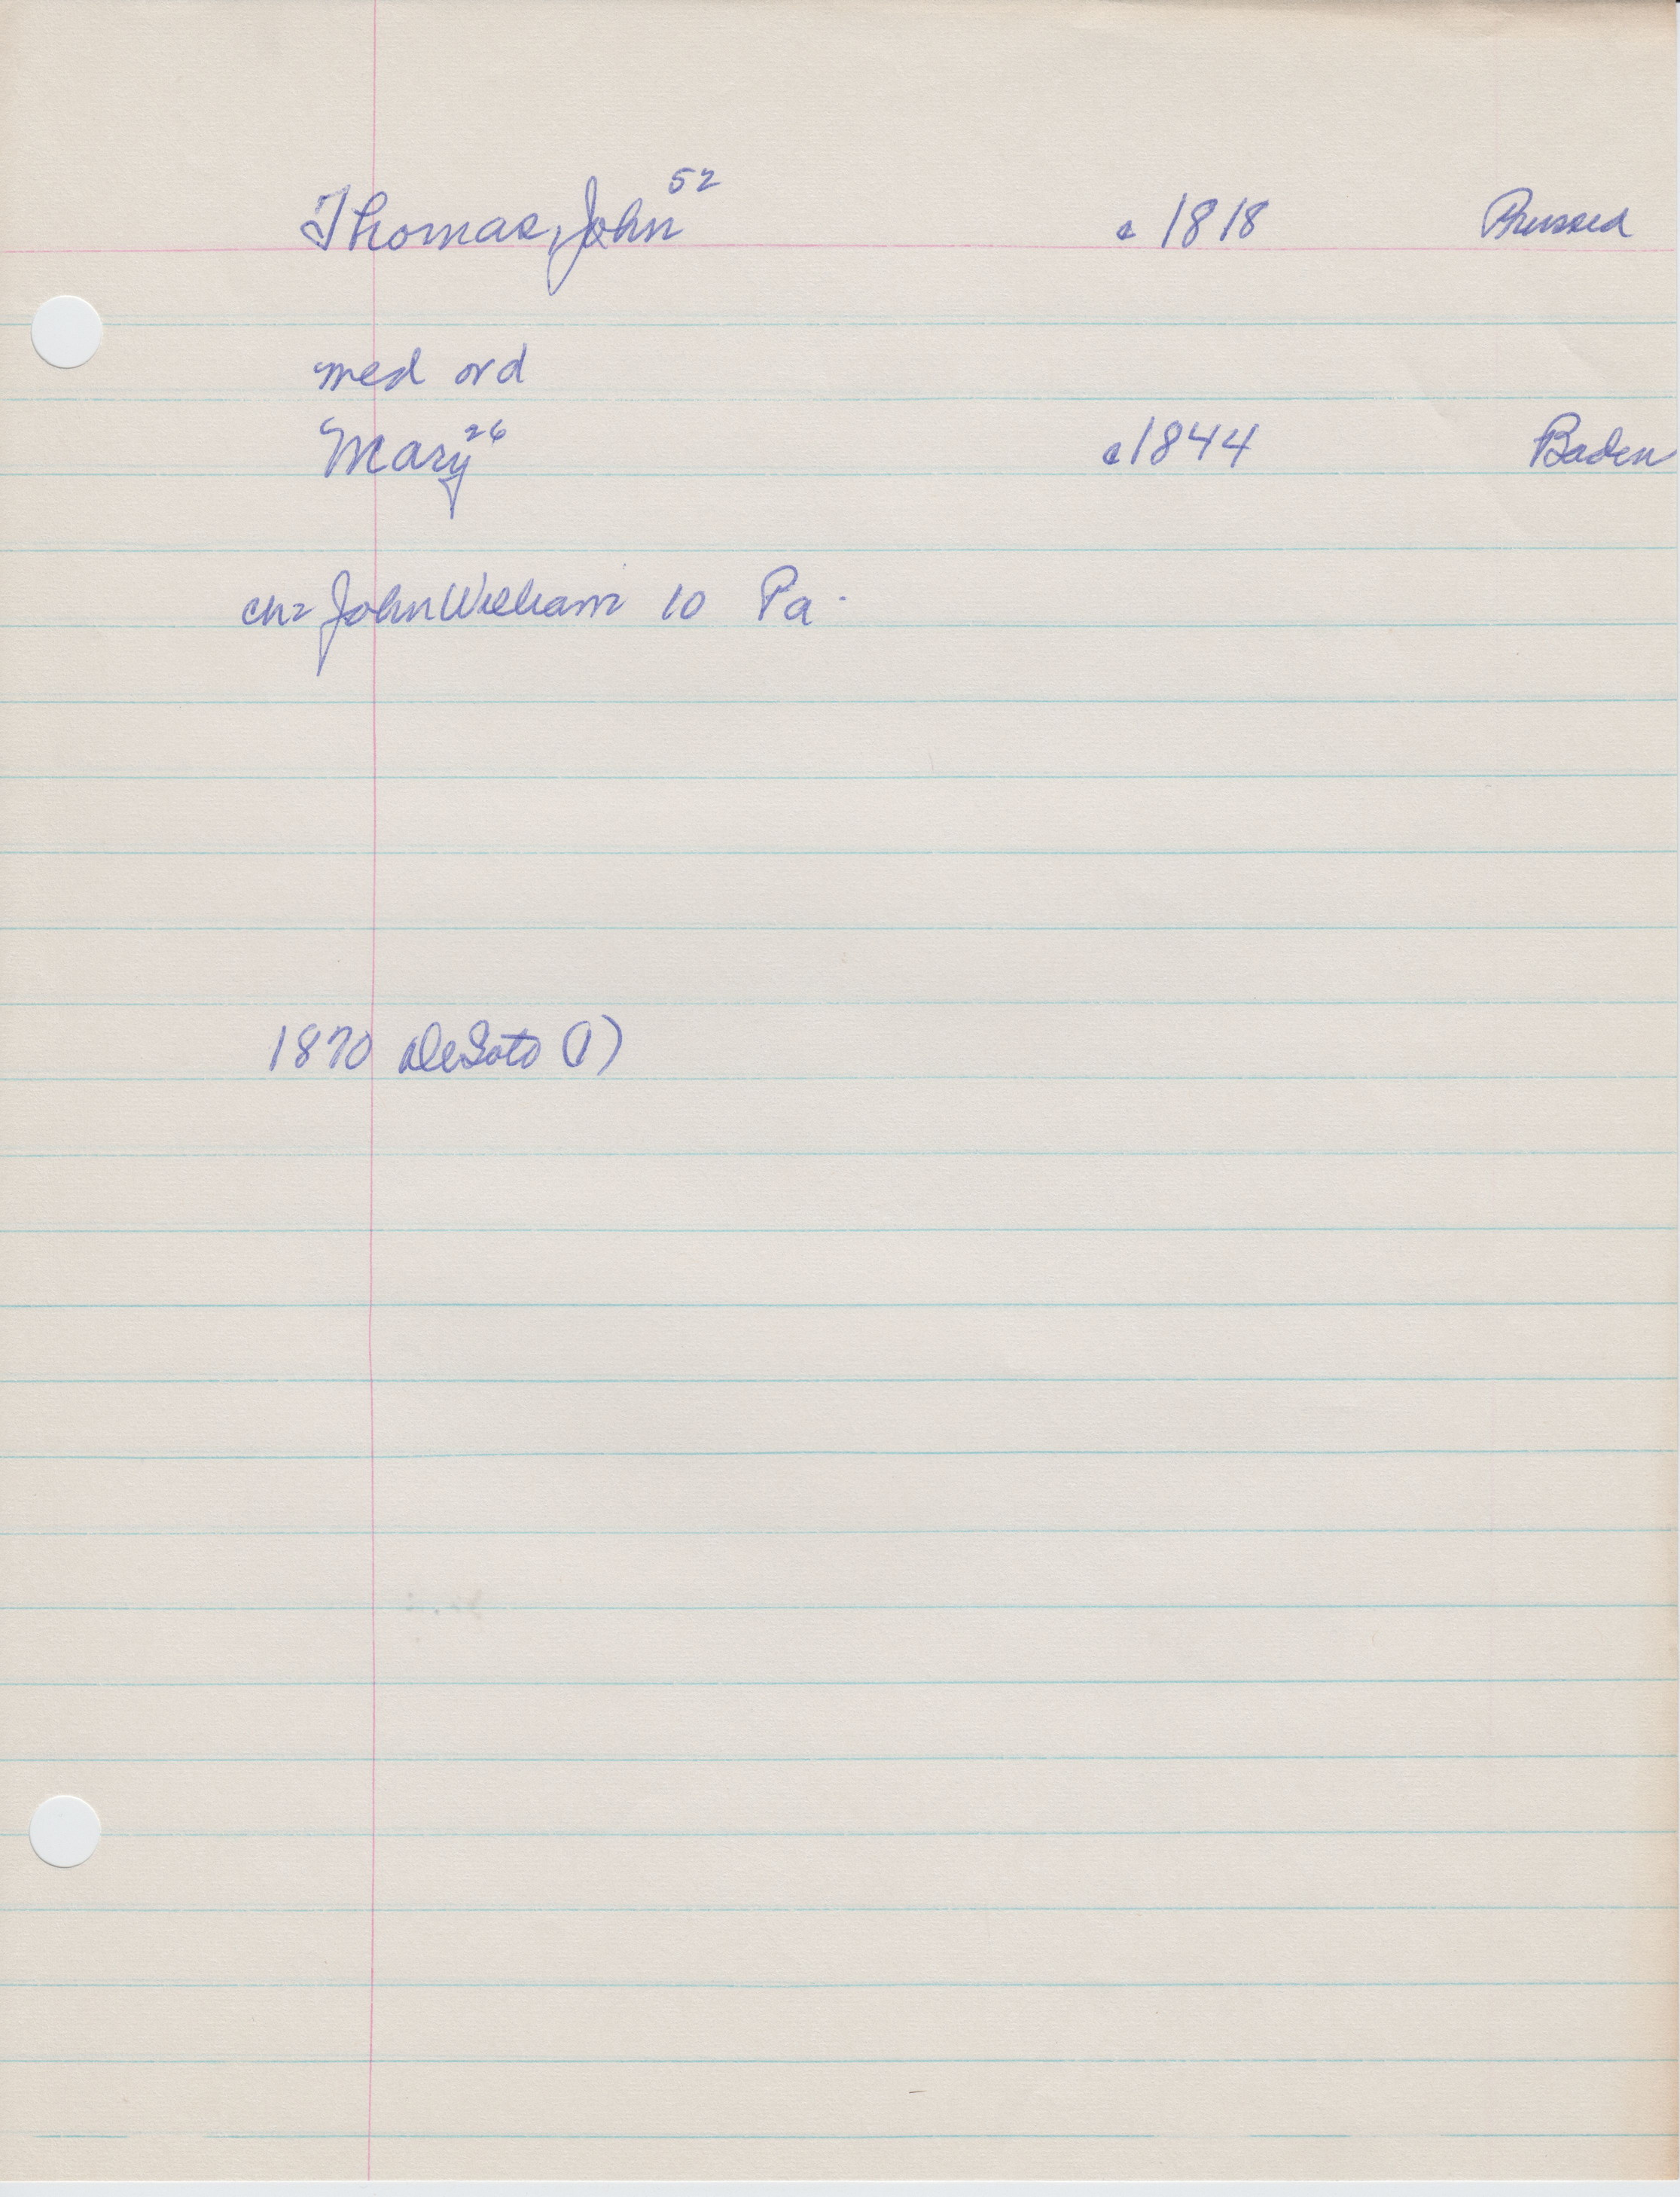 Thomas, John 52 c 1818 Prussia
med ord
Mary 26 c1844 Baden
ch= John William 10 Pa.
1870 DeSoto (1)